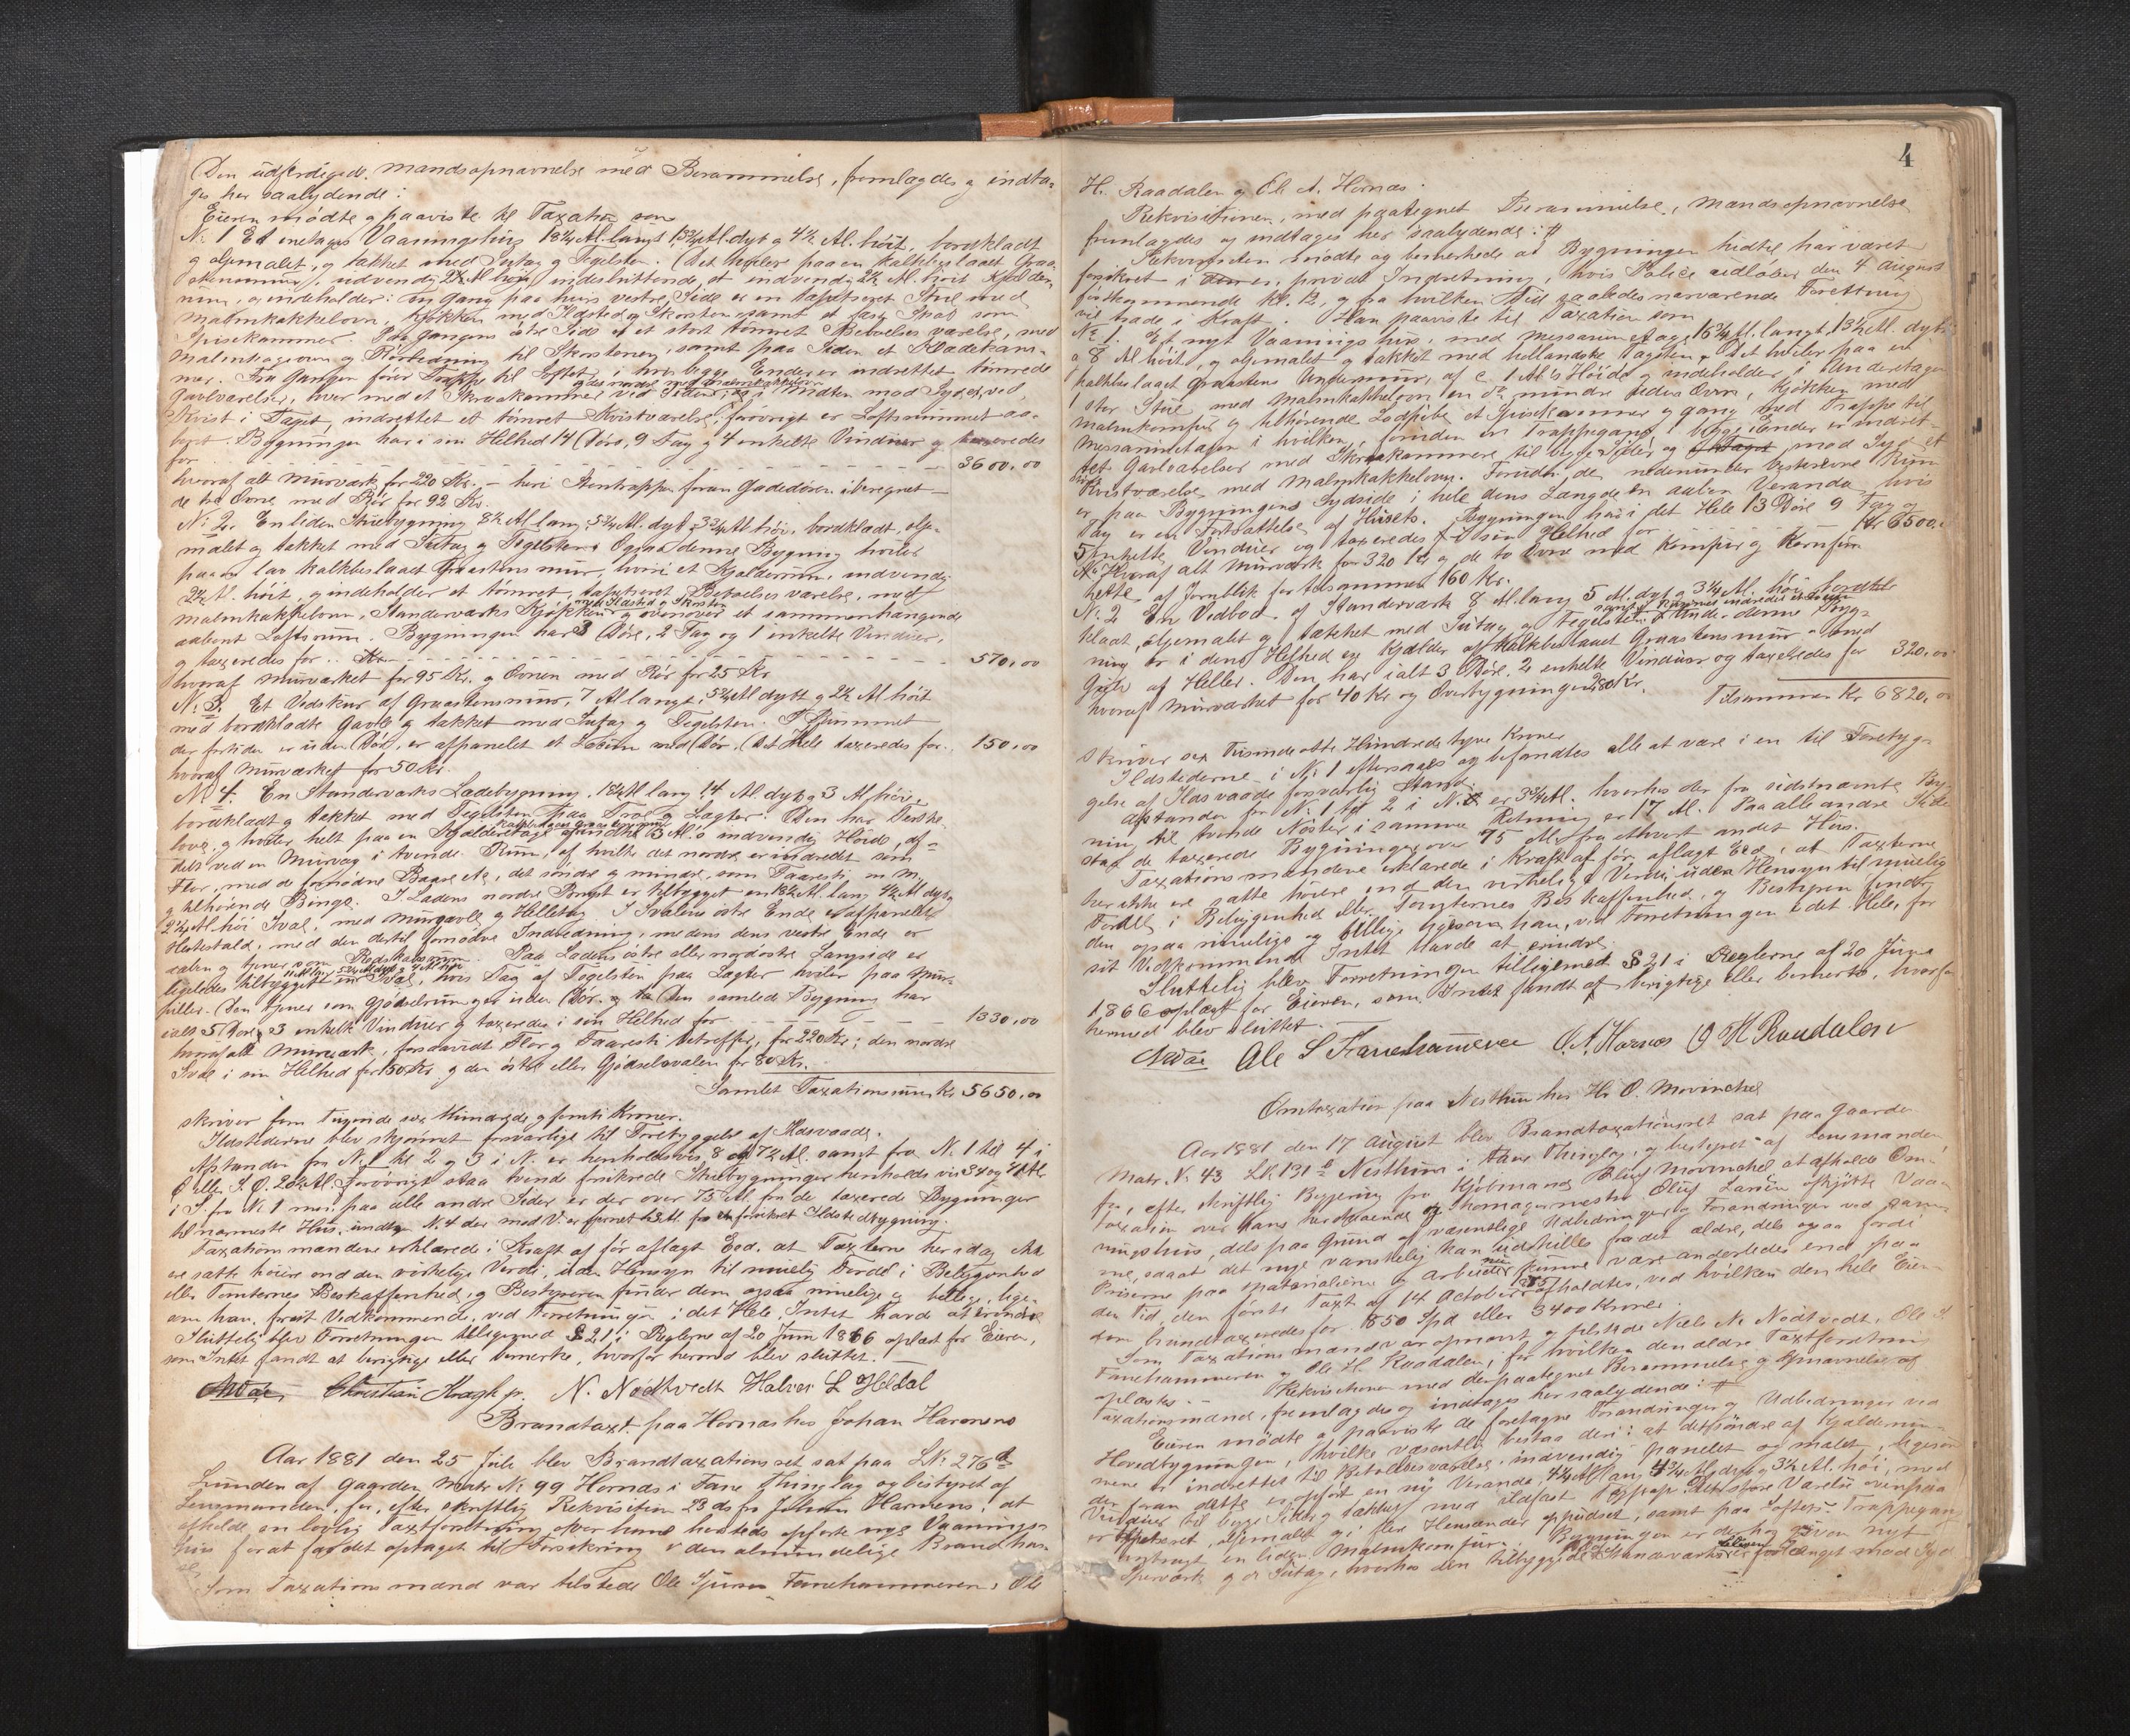 Den udfærdigede Mandsopnævnelse med Berammelse, fremlagdes og indta-
ges her saalydende:
Eieren mødte og paaviste til Taxation som
No 1 Et enetages Vaaningshus 18¼ Al. langt 13¾ Al. dybt og 4½ Al. høit, bordklædt
og oljemalet, og takket med Sutag og Tegelsten. Det hviler paa en kalkbeslaaet Graa-
stensmur, udvendig 2¼ Al. høi, indesluttende et indvendig 2¼ Al. høit Kjælder-
rum, og indeholder: en Gang paa hvis vestre Side er en tapetseret Stue med
Malmkakkelovn, Kjøkken med Ildsted og Skorsten samt et fast Skab som
Spisekammer. Paa Gangens østre Side er et stort tømret Beboelses værelse, med
Malmkogeovn og Rørledning til Skorstenen, samt paa Siden et Klædekam-
mer. Fra Gangen fører Trappe til Loftet, i hvis begge Ender er indrettet tømrede
Gavlværelser, hver med et Skraakammer ved Siden, og i Midten mod Syd, ved
Kvist i Taget, indrettet et tømret Kvistværelse, forøvrigt er Loftsrummet aa-
bent. Bygningen har i sin Helhed 14 Døre, 9 Fag og 4 enkelte Vinduer og taxeredes
for 3600,00
hvoraf alt Murværk for 220 Kr. – heri Stentrappe foran Gadedøren iberegnet –
de to Ovne med Rør for 92 Kr.
No 2. En liden Stuebygning 8½ Al. lang, 5¾ Al. dyb, 3¾ Al. høi, bordklædt, olje-
malet og takket med Sutag og Tegelsten. Ogsaa denne Bygning hviler
paa en lav kalkbeslaaet Graastensmur, hvori et Kjælderrum, indvendig
2¼ Al. høit, og indeholder et tømret, tapetseret Beboelses værelse, med
Malmkakkelovn, Standerværks Kjøkken med Ildsted og Skorsten og ovenover et sammenhængende
aabent Loftsrum. Bygningen har 3 Døre, 2 Fag og 1 enkelte Vinduer,
og taxeredes for .. Kr. 570,00
hvoraf Murværket for 95 Kr. og Ovnen med Rør for 25 Kr.
No 3. Et Vedskur af Graastensmur, 7 Al. langt, 5¾ Al. dybt og 2½ Al. høit
med bordklædte Gavle og takket med Sutag og Tegelsten. I Rummet
der fortiden er uden Dør, er afpanelet et Lokum med Dør. Det Hele taxeredes for.. 150,00
hvoraf Murværket for 50 Kr.
No 4. En Standerværks Ladebygning, lang 14 Al. dyb og 3 Al. høi,
bordklædt og takket med Tegelsten paa Troe og Lægter. Den har Tærske-
love, og hviler helt paa en Kjælderetage af indtil 3 Al's indvendig Høide, af-
delt ved en Murvæg i tvende Rum, af hvilke det nordre er indredet som
Flor, med de fornødne Baase &c, det søndre og mindre, som Faaresti, m. m.
og tilhørende Binge. I Ladens nordre Brugt er tilbygget en 18¼ Al. lang 4½ Al. dyb og
2¼ Al. høi Sval, med Murgavle og Helletag. I Svalens østre Ende er afpanelet
Hestestald, med den dertil fornødne Indredning, medens dens vestre Ende er
aaben og tjener som Redskabsrum. Paa Ladens østre eller nordøstre Langside er
ligeledes tilbygget en Sval, hvis Tag af Tegelsten paa Lægter hviler paa Mur-
piller. Den tjener som Gjødselrum og er uden Dør. Den samlede Bygning har
ialt 5 Døre og 3 enkelte Vinduer og taxeredes i sin Helhed for 1330,00
hvoraf alt Murværk, forsaavidt Flor og Faaresti betreffer, for 220 Kr; den nordre
Sval i sin Helhed for 150 Kr. og den østre eller Gjødselsvalen for 80 Kr.
Samlet Taxationssum Kr. 5650,00
skriver fem Tusinde sex Hundrede og femti Kroner.
Ildstederne blev skjønnet forsvarlige til Forebyggelse af Ildsvaade.
Afstanden fra No 1 til 2 og 3 i N. er henholdsvis 8 og 7½ Al. samt fra No 1 til 4 i
Ø. eller S. Ø. 20½ Al. Forøvrigt staa tvende frikrede Stuebygninger henholdsvis 34 og 41 Al.
i S. fra No 1 men paa alle andre Sider er der over 75 Al. fra de taxerede Bygninger
til nærmeste Hus, undtagen No 4 der mod V. er fjernet 43 Al. fra en forsikret Ildstedbygning.
Taxationsmændene erklærede i Kraft af før aflagt Eed, at Taxterne her idag ikke
ere satte høiere end den virkelige Værdi, uden Hensyn til muelig Fordel i Beliggenhed
eller Tomternes Beskaffenhed, og Bestyreren finder dem ogsaa rimelige og billige, lige-
som han, for sit Vedkommende, ved Forretningen i det Hele, Intet havde at erindre.
Sluttelig blev Forretningen tilligemed § 21 i Reglerne af 20 Juni 1866 oplæst for Eieren,
som Intet fandt at berigtige eller bemerke, hvorfor hermed blev sluttet.
Christian Kragh jr. N. Nødtvedt Halvor L Heldal
Brandtaxt paa Hornæs hos Johan Harmens
Aar 1881 den 25 Juli blev Brandtaxationsret sat paa LNo 276
Lunden af Gaarden Matr. No 99 Hornæs i Fane Thinglag og bestyret af
Lensmanden, for, efter skriftlig Rekvisition 23 ds. fra Johan Harmens, at
afholde en lovlig Taxtforretning over hans hersteds opførte nye Vaanings-
hus for at faa det optaget til Forsikring i den almindelige Brandkas-
se.
Som Taxationsmænd var tilstede Ole Sjursen Fanehammeren, Ole
4
H. Raadalen og Ole A. Hornæs.
Rekvisitionen, med paategnet Berammelse, Mandsopnævnelse
fremlagdes og indtages her saalydende: #
Rekvirenten mødte og bemerkede at Bygningen hidtil har været
forsikret i privat Indretning, hvis Police udløber den 4 August
førstkommende kl. 12, og fra hvilken Tid saaledes nærværende Forretning
vil træde i Kraft. Han paaviste til Taxation som
No 1. Et nyt Vaaningshus, med Messaninetage, 16¾ Al. langt, 13½ Al. dybt
og 8 Al. høit, og oljemalet og takket med hollandske Tagsten. Det hviler paa en
kalkbeslaaet Graastens Undermur, af c. 1 Al's Høide og indeholder i Underetagen
1 stor Stue med Malmkakkelovn, en do mindre uden Ovn, Kjøkken med
Malmkomfur og tilhørende Lodpibe, et Spisekammer og Gang med Trappe til
Messaninetagen i hvilken, foruden en Trappegang, i begge Ender er indret-
tet Gavlværelser med Skraakammere til begge Sider, og mod Syd et
Kvistværelse med Malmkakkelovn. Foruden de nedenunder beskrevne Rum
er paa Bygningens Sydside i hele dens Længde en aaben Veranda, hvis
Tag er en Fortsættelse af Husets. Bygningen har i det Hele 13 Døre 9 Fag og
5 enkelte Vinduer og taxeredes i sin Helhed for Kr 6500,00
Hvoraf alt Murværk for 320 Kr. og de to Ovne med Komfur og Komfur-
hette af Jernblik for tilsammen 160 Kr.
No 2 En Vedbod af Standerværk 8 Al. lang 5 Al. dyb og 3¼ Al. høi, bord-
klædt, oljemalet og takket med Sutag og Tegelsten. Under denne Byg-
ning er i dens Helhed en Kjælder af kalkbeslaaet Graastensmur med
Gulv af Heller. Den har ialt 3 Døre, 2 enkelte Vinduer og taxeredes for 320,00
hvoraf Murværket for 40 Kr og Overbygningen 280 Kr.
Tilsammen Kr 6820,00
skriver sex Tusinde otte Hundrede tyve Kroner
Ildstederne i No 1 eftersaaes og befandtes alle at være i en til Forebyg-
gelse af Ildsvaade forsvarlig Stand.
Afstanden fra No 1 til 2 i N. er 3¾ Al. hvorhos der fra sidstnævnte Byg-
ning til tvende Nøster i samme Retning er 17 Al. Paa alle andre Sider
staa de taxerede Bygninger over 75 Al. fra ethvert andet Hus.
Taxationsmændene erklærede i Kraft af før aflagt Eed, at Taxterne
her ikke ere satte høiere end den virkelige Værdi, uden Hensyn til muelig
Fordel i Beliggenhed eller Tomternes Beskaffenhed, og Bestyreren finder
dem ogsaa rimelige og billige ligesom han, ved Forretningen i det Hele, for
sit Vedkommende Intet havde at erindre.
Sluttelig blev Forretningen tilligemed § 21 i Reglerne af 20 Juni
1866 oplæst for Eieren, som Intet fandt at berigtige eller bemerke, hvorfor
hermed blev sluttet.
Ole S Fanehammeren O. A. Hornæs O H Raadalen
Omtaxation paa Nesthun hos Hr. O. Movinchel
Aar 1881 den 17 August blev Brandtaxationsret sat paa Gaarden
Matr. No 43 LNo 131 Nesthun i Fane Thinglag, og bestyret af Lensmanden
for, efter skriftlig Begjæring fra Kjøbmand Oluf Movinchel at afholde Om-
taxation over hans herstaaende Oluf Larsen Vaa-
ningshus, dels paa Grund af væsentlige Udbedringer og Forandringer ved sam-
me, saaat det nye vanskelig kan udskilles fra det ældre, dels ogsaa fordi
Priserne paa Materialierne og Arbeidet nu kunne være anderledes end paa
den Tid, den første Taxt af 14 October afholdtes, ved hvilken den hele Eien-
dom brandtaxeredes for 850 Spd eller 3400 Kroner.
Som Taxationsmænd var opnævnt og tilstede Niels N. Nødtvedt, Ole S.
Fanehammeren og Ole H. Raadalen, for hvilken den ældre Taxtforretning
oplæstes.
Rekvisitionen med derpaategnet Berammelse og Opnævnelse af
Taxationsmænd, fremlagdes og indtages her saalydende: #
Eieren mødte og paaviste de foretagne Forandringer og Udbedringer ved
Hovedbygningen, hvilke væsentlig bestaa deri: at det søndre af Kjælderrum-
mene er indrettet til Beboelsesværelse, indvendig panelet og malet, ligesom
der foran dette er opført en ny Veranda, 4¼ Al. lang 4¾ Al. dyb og 3¼ Al. høi, med
Vinduer til begge Sider og takket med ildfast Tagpap. Det større Værelse ovenpaa
er tapetseret, oljemalet og i flere Henseender oppudset, samt paa Loftets Trappegang
anbragt en liden Malmkomfur. Bygningen er derhos given nyt
Sperværk og Sutag, hvorhos den tilbyggede Standerværks forlænget mod Syd